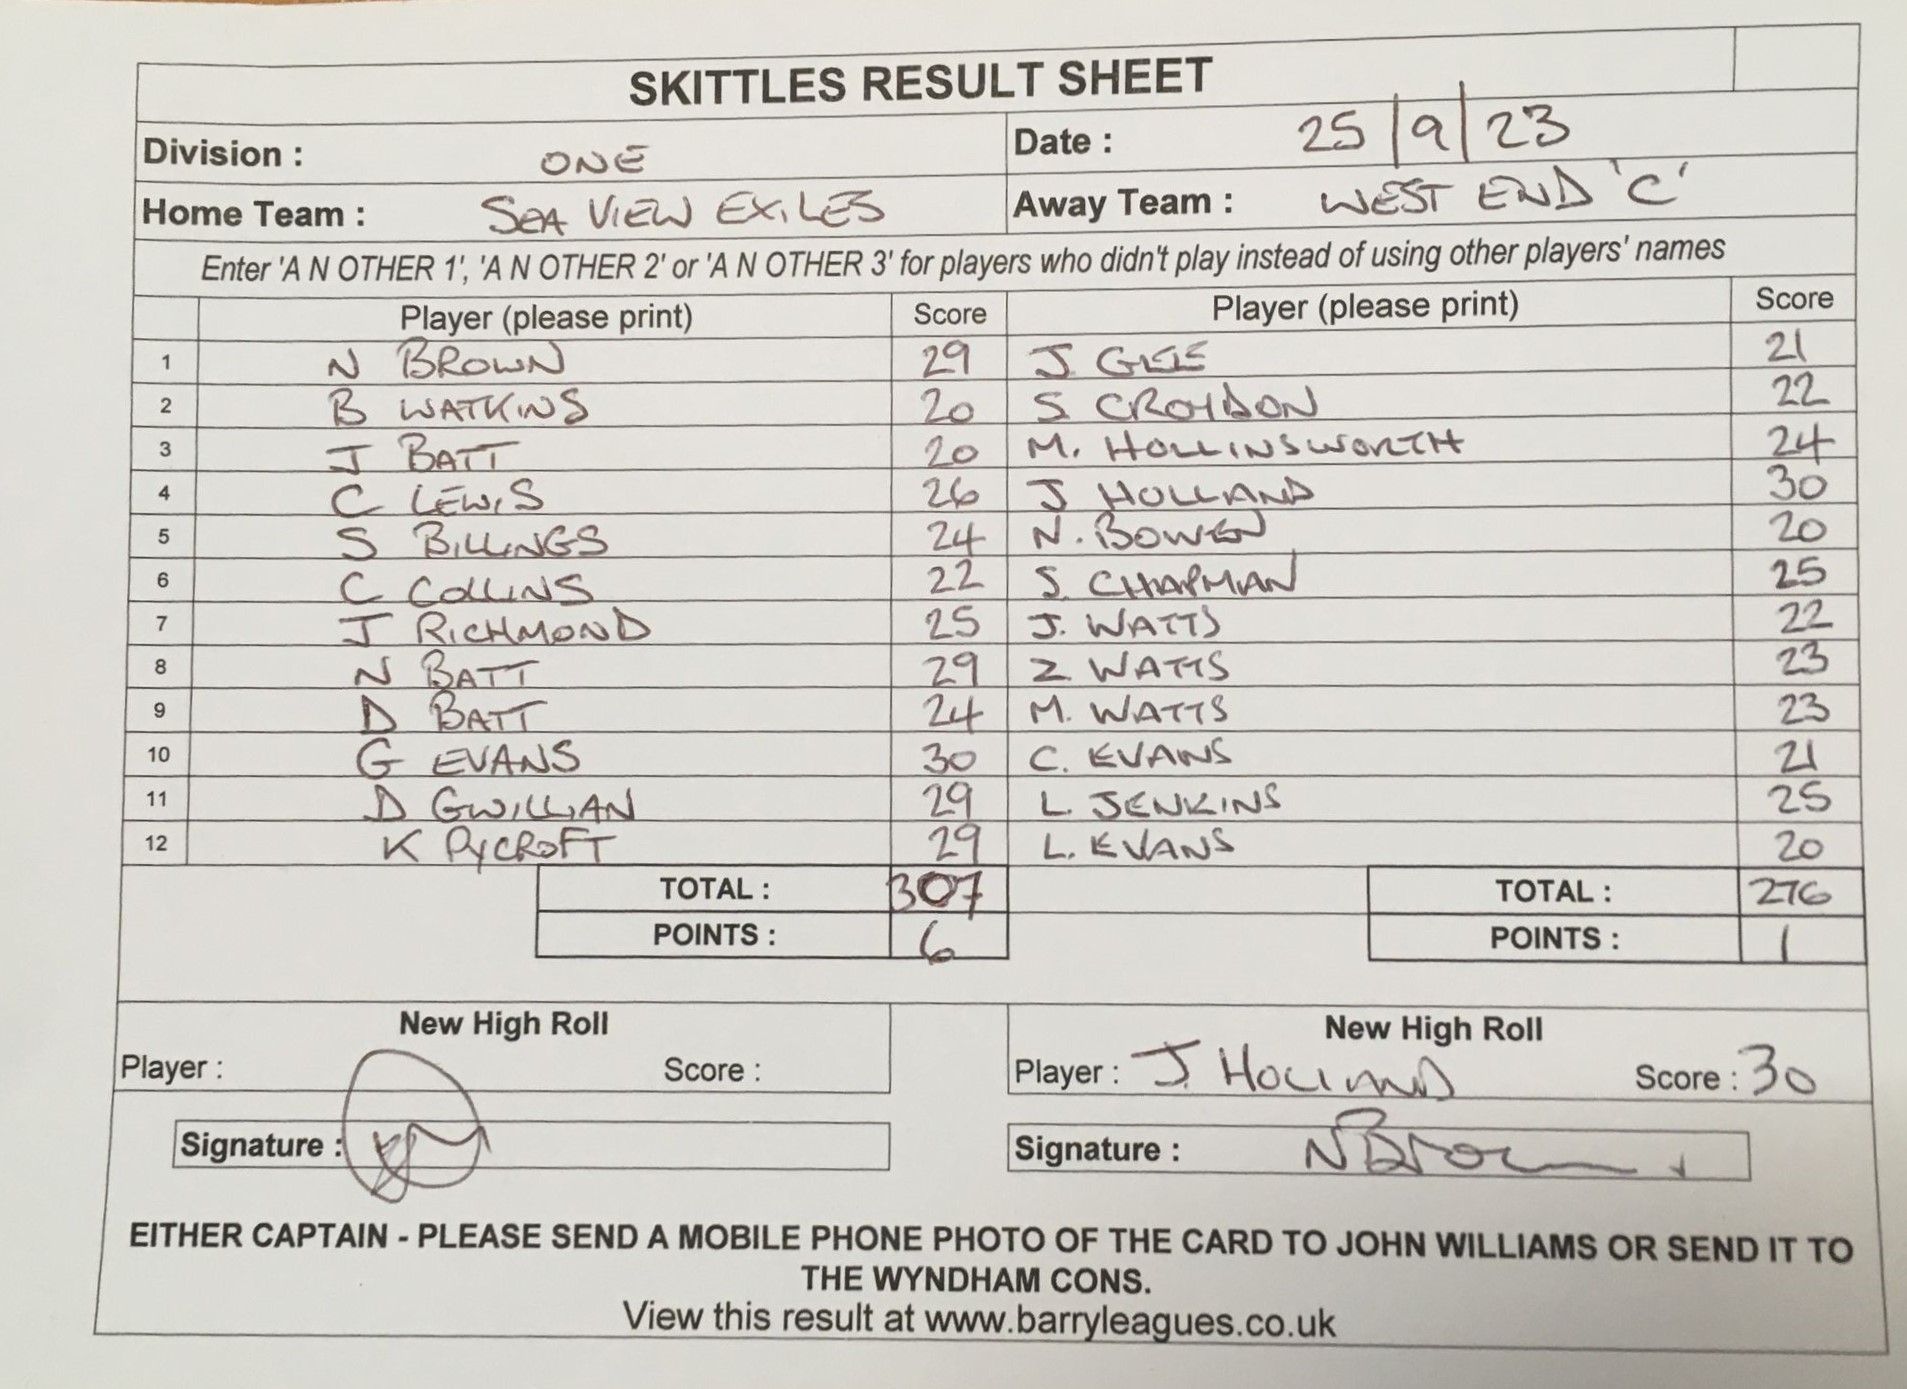 SKITTLES RESULT SHEET
Division : ONE Date : 25/9/23
Home Team : SEA VIEW EXILES Away Team : WEST END 'C'
Enter 'A N OTHER 1', 'A N OTHER 2' or 'A N OTHER 3' for players who didn't play instead of using other players' names
Player (please print) Score Player (please print) Score
1 N BROWN 29 J. GEE 21
2 B WATKINS 20 S. CROYDON 22
3 J BATT 20 M. HOLLINSWORTH 24
4 C LEWIS 26 J HOLLAND 30
5 S BILLINGS 24 N. BOWEN 20
6 C COLLINS 22 S. CHAPMAN 25
7 J RICHMOND 25 J. WATTS 22
8 N BATT 29 Z. WATTS 23
9 D BATT 24 M. WATTS 23
10 G EVANS 30 C. EVANS 21
11 D GWILLIAN 29 L. JENKINS 25
12 K PYCROFT 29 L. EVANS 20
TOTAL : 307 TOTAL : 276
POINTS : 6 POINTS : 1
New High Roll New High Roll
Player : Score : Player : J. HOLLAND Score : 30
Signature : Signature : N Brown
EITHER CAPTAIN - PLEASE SEND A MOBILE PHONE PHOTO OF THE CARD TO JOHN WILLIAMS OR SEND IT TO
THE WYNDHAM CONS.
View this result at www.barryleagues.co.uk